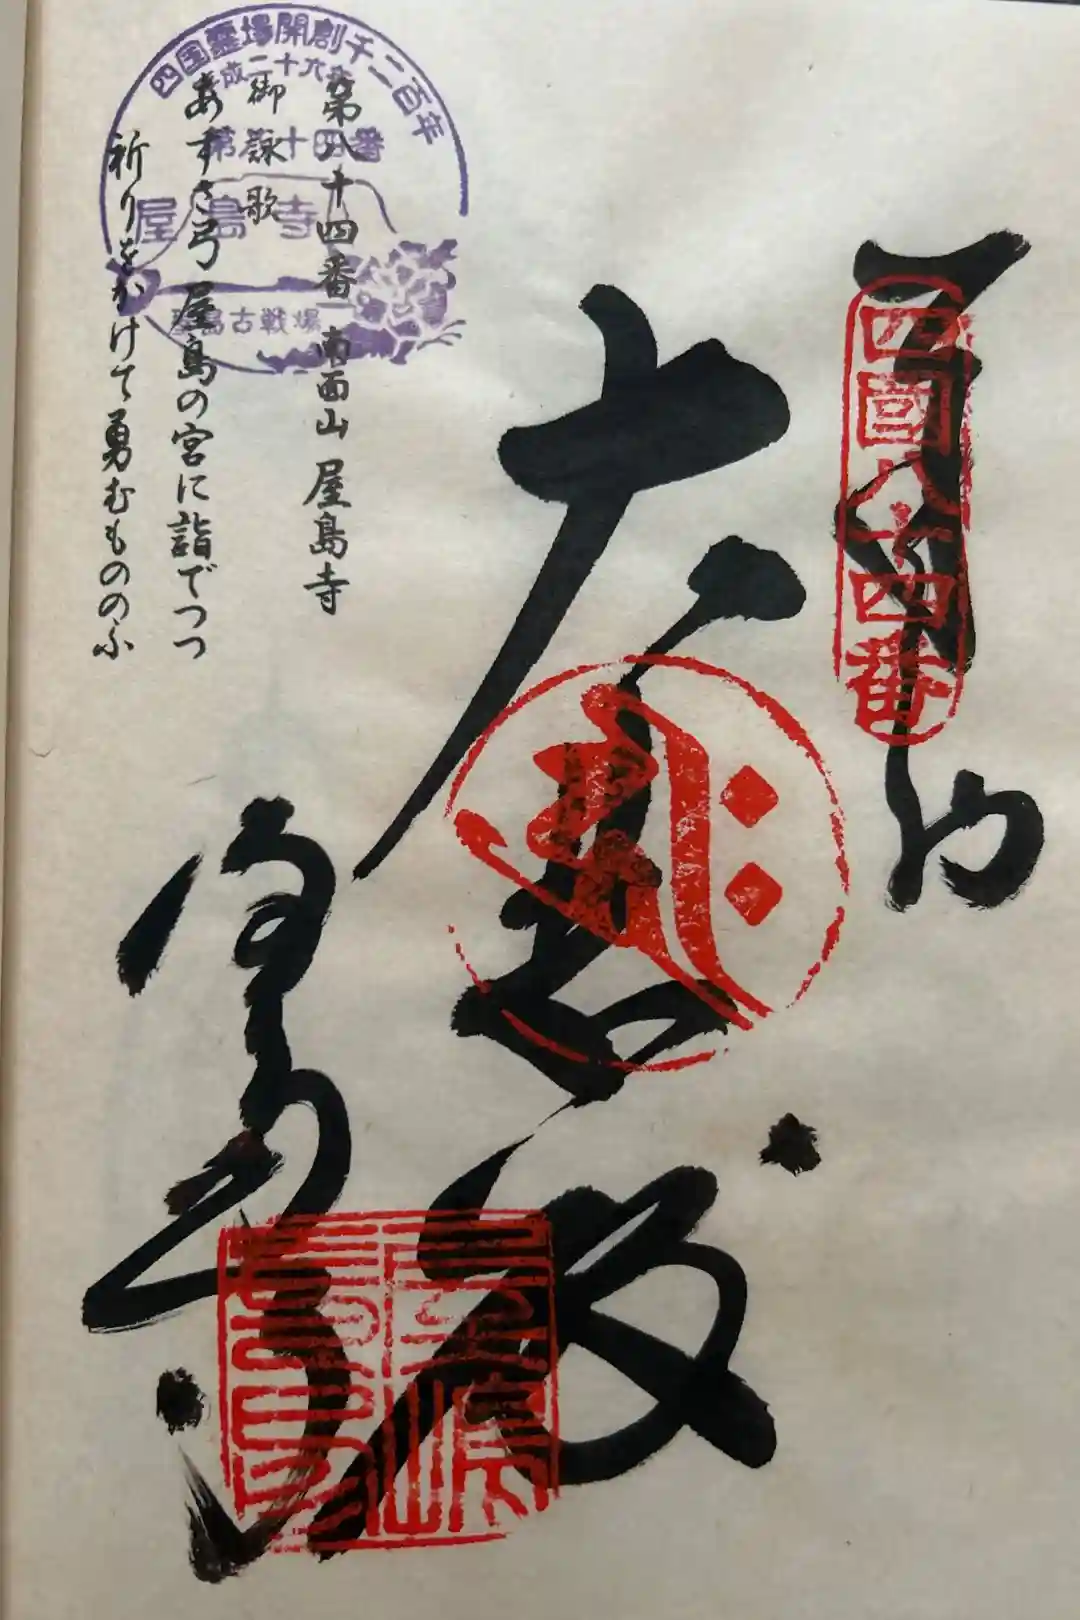 四國八十四番
奉納
大悲殿
屋島寺
第八十四番 南面山 屋島寺
御詠歌
あずさ弓 屋島の宮に詣でつつ
祈りをかけて勇むもののふ
四国霊場開創千二百年
平成二十六年
第八十四番
屋島寺
屋島古戦場